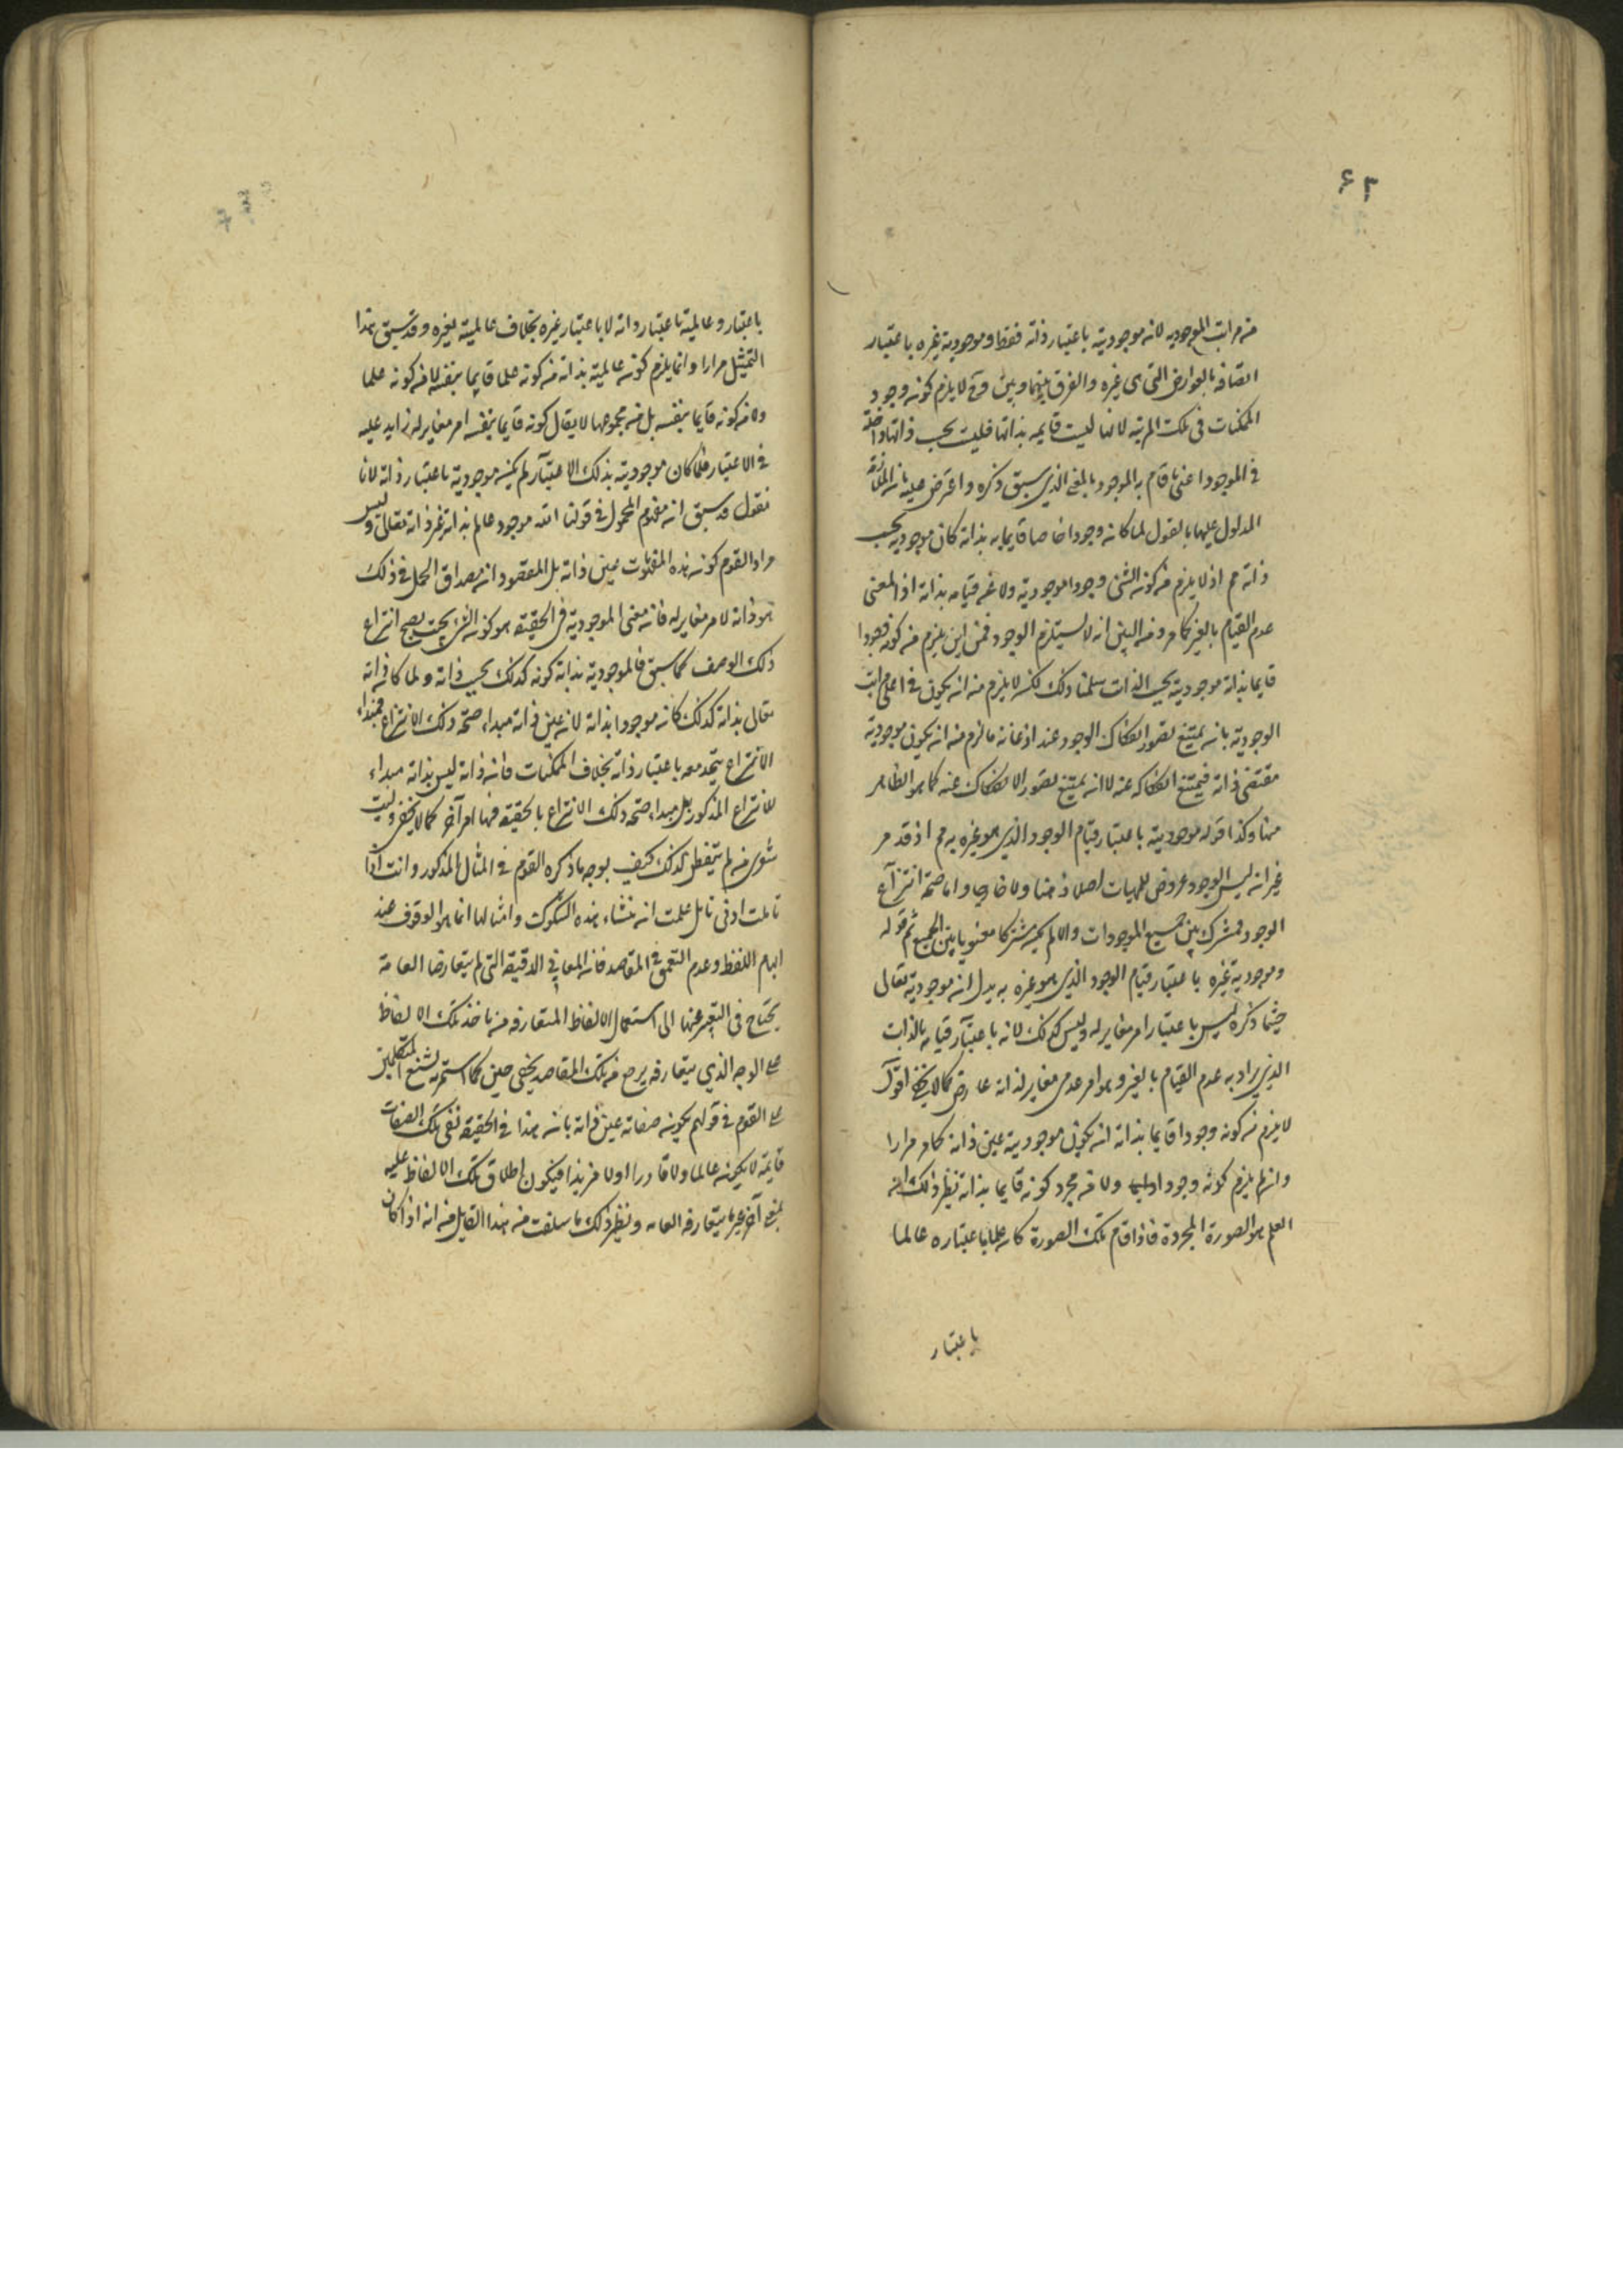 ٦٣
من مراتب الموجوديه لان موجوديته باعتبار ذاته فقط وموجودية غيره باعتبار
اتصافه بالعوارض التى هى غيره والفرق بينهما وبين وح لا يلزم كون وجود
الممكنات فى تلك المرتبه لانها ليست قايمه بذاتها فليست بحسب ذاتها داخلة
فى الموجود اعنى ما قام به الموجود بالمعنى الذى سبق ذكره واعترض عليه بان الملازمة
المدلول عليها بالقول لما كان وجودا خاصا قايما به بذاته كان موجوديه بحسب
ذاته مم اذ لا يلزم من كون الشئ وجودا موجوديته ولا عن قيامه بذاته اذ المعنى
عدم القيام بالغير كما مر ومن البين انه لا يستلزم الوجود فمن اين يلزم من كونه وجودا
قايما بذاته موجوديته بحسب الذات سلمنا ذلك لكن لا يلزم منه ان يكون فى اعلى مراتب
الوجوديه بان يمتنع تصور انفكاك الوجود عنه اذ غاية ما لزم منه ان يكون موجوديته
مقتضى ذاته فيمتنع انفكاكه عنه لا ان يمتنع تصور الانفكاك عنه كما هو الظاهر
منها وكذا قوله موجوديته باعتبار قيام الوجود الذي هو غيره به مم اذ قد مر
غير انه ليس الوجود عروض للمهيات اصلا ذهنا ولا خارجا واما صحة انتزاع
الوجود فمشترك بين جميع الموجودات والا لم يكن مشتركا معنويا بين الجميع ثم قوله
وموجودية غيره باعتبار قيام الوجود الذي هو غيره به يدل ان موجوديته تعالى
حيثما ذكره ليس باعتبار امر مغاير له وليس كذلك لانه باعتبار قيامه بالذات
الذي يراد به عدم القيام بالغير وهو امر عدمى مغاير لذاته عارض كما لا يخفى اقول
لا يلزم من كونه وجودا قايما بذاته ان يكون موجوديته عين ذاته كما مر مرارا
وان لم يلزم كونه وجودا ولا من مجرد كونه قايما بذاته نظير ذلك ان
العلم هو الصورة المجردة فاذا قام تلك الصورة كان علما باعتباره عالما
باعتبار
باعتبار وعالميته باعتبار ذاته لا باعتبار غيره بخلاف عالمية غيره وقد سبق هذا
التمثيل مرارا وانما يلزم كون عالميته بذاته من كونه علما قايما بنفسه لا من كونه علما
ولا من كونه قايما بنفسه بل من مجموعها لا يقال كونه قايما بنفسه امر مغاير له زايد عليه
فى الاعتبار فلما كان موجوديته بذلك الاعتبار لم يكن موجوديته باعتبار ذاته لانا
نقول قد سبق ان مفهوم المحمول فى قولنا الله موجود عالم بذاته غير ذاته تعالى وليس
مراد القوم كون هذه المفهومات عين ذاته بل المقصود ان مصداق الحمل فى ذلك
هو ذاته لا امر مغاير له فان معنى الموجودية فى الحقيقه هو كون الشئ بحيث يصح انتزاع
ذلك الوصف كما سبق فالموجوديه بذاته كونه كذلك بحسب ذاته ولما كان ذاته
تعالى بذاته كذلك كان موجودا بذاته لان عين ذاته مبداء صحة ذلك الانتزاع فمبداء
الانتزاع يتحد معه باعتبار ذاته بخلاف الممكنات فان ذاته ليس بذاته مبداء
للانتزاع المذكور بل مبداء صحة ذلك الانتزاع بالحقيقه فيها امر آخر كما لا يخفى وليت
شعرى من لم يتفطن لذلك كيف يوجه ما ذكره القوم فى المثال المذكور وانت اذا
تاملت ادنى تامل علمت ان منشاء هذه الشكوك وامثالها انما هو الوقوف عند
ابهام اللفظ وعدم التعمق فى المقاصد فان المعانى الدقيقة التى لم يتعارضها العامة
يحتاج فى التعبير عنها الى استعمال الالفاظ المتعارفه من ياخذ تلك الالفاظ
على الوجه الذي يتعارفه يرجع من تلك المقاصد بخفى حنين كما استمر به تشنيع المتكلمين
على القوم فى قولهم بكون صفاته عين ذاته بان هذا فى الحقيقة نفى تلك الصفات
قايمة لا يكون عالما ولا قادرا ولا مريدا فيكون اطلاق تلك الالفاظ عليه
بمعنى آخر غير ما يتعارفه العامه ونظير ذلك ما سلفت منه هذا القايل من انه اذا كان